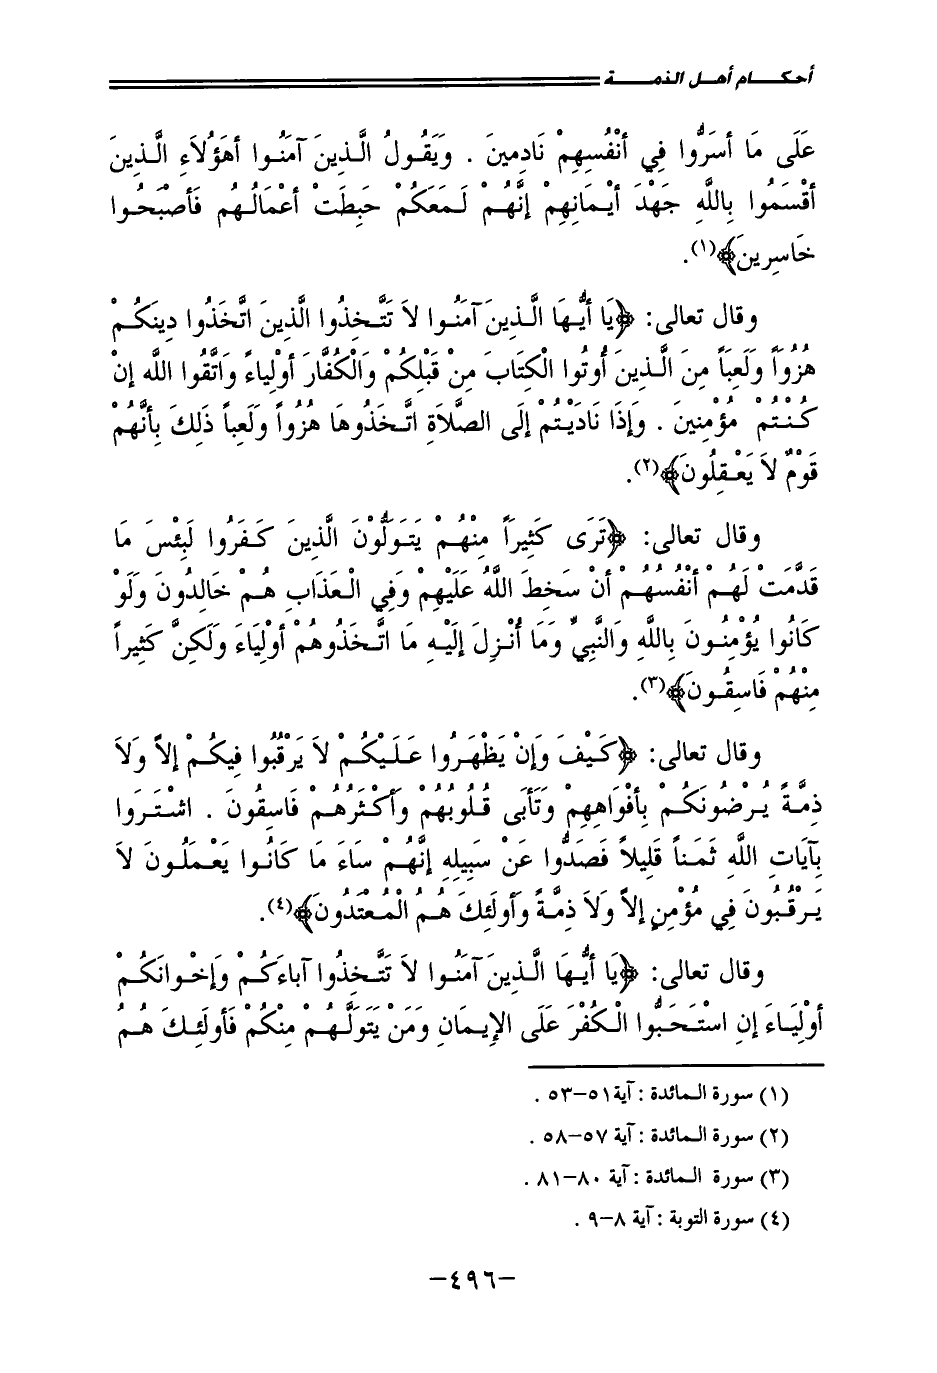 أحكـــام أهـل الذمـــة
عَلَى مَا أسَرُّوا فِي أنْفُسِهِمْ نَادِمِينَ . وَيَقُـولُ الَّـذِينَ آمَنُـوا أهَؤُلاَءِ الَّـذِينَ
أقْسَمُوا بِاللَّهِ جَهْدَ أيْـمَانِهِمْ إنَّهُـمْ لَـمَعَكُمْ حَبِطَتْ أعْمَالُـهُم فَأصْبَحُـوا
خَاسِرِينَ﴾(١).
وقال تعالى: ﴿يَا أيُّـهَا الَّـذِينَ آمَنُـوا لاَ تَتَّـخِذُوا الَّذِينَ اتَّخَذُوا دِينَكُـمْ
هُزُواً وَلَعِباً مِنَ الَّـذِينَ أُوتُوا الْكِتَابَ مِنْ قَبْلِكُمْ وَالْكُفَّارَ أوْلِيَاءً وَاتَّقُوا اللَّه إنْ
كُـنْـتُـمْ مُؤْمِنِينَ . وَإذَا نَادَيْـتُم إلَى الصَّلَاةِ اتَّـخَذُوهَا هُزُواً وَلَعِباً ذَلِكَ بِأنَّهُمْ
قَوْمٌ لاَ يَعْـقِلُونَ﴾(٢).
وقال تعالى: ﴿تَرَى كَثِيراً مِنْهُـمْ يَتَـوَلَّوْنَ الَّذِينَ كَـفَرُوا لَبِئْسَ مَا
قَدَّمَتْ لَهُـمْ أنْفُسُهُـمْ أنْ سَخِطَ اللَّهُ عَلَيْهِمْ وَفِي الْـعَذَابِ هُـمْ خَالِدُونَ وَلَوْ
كَانُوا يُؤْمِنُـونَ بِاللَّهِ وَالنَّبِيِّ وَمَا أُنْـزِلَ إلَيْـهِ مَا اتَّـخَذُوهُمْ أوْلِيَاءَ وَلَكِنَّ كَثِيراً
مِنْهُمْ فَاسِقُـونَ﴾(٣).
وقال تعالى: ﴿كَـيْـفَ وَإنْ يَظْهَـرُوا عَـلَـيْكُـمْ لاَ يَرْقُبُوا فِيكُـمْ إلاًّ وَلاَ
ذِمَّةً يُـرْضُونَكُـمْ بِأفْوَاهِهِمْ وَتَأبَى قُـلُوبُهُمْ وَأكْثَرُهُـمْ فَاسِقُونَ . اشْتَـرَوا
بِآيَاتِ اللَّهِ ثَمَـناً قَلِيلاً فَصَدُّوا عَنْ سَبِيلِهِ إنَّهُـمْ سَاءَ مَا كَانُـوا يَعْمَلُـونَ لاَ
يَـرْقُبُونَ فِي مُؤْمِنٍ إلاًّ وَلاَ ذِمَّةً وَأُولَئِكَ هُـمُ الْمُعْتَدُونَ﴾(٤).
وقال تعالى: ﴿يَا أيُّـهَا الَّـذِينَ آمَنُـوا لاَ تَتَّـخِذُوا آبَاءَكُـمْ وَإخْـوَانَكُـمْ
أوْلِيَـاءَ إنِ اسْتَـحَبُّوا الْـكُفْرَ عَلَى الإيمَانِ وَمَنْ يَتَوَلَّـهُـمْ مِنْكُمْ فَأُولَئِـكَ هُـمُ
(١) سورة الـمائدة : آية٥١–٥٣ .
(٢) سورة الـمائدة : آية ٥٧–٥٨ .
(٣) سورة الـمائدة : آية ٨٠–٨١ .
(٤) سورة التوبة : آية ٨–٩ .
–٤٩٦–